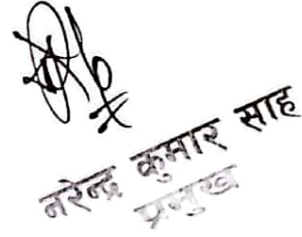 नरेन्द्र कुमार साह
प्रमुख